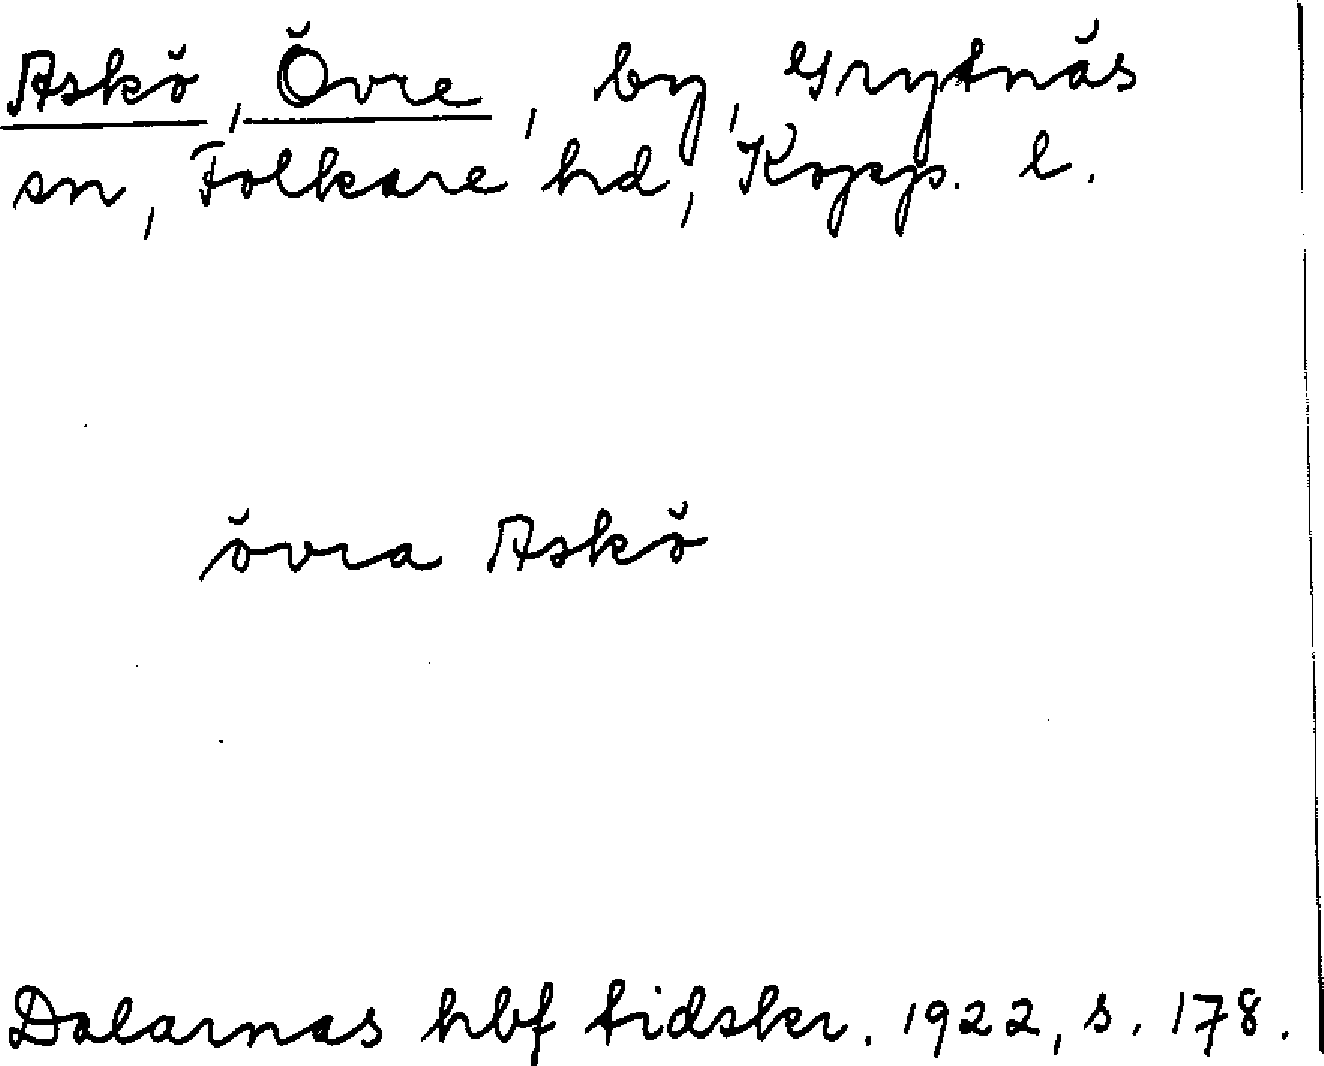 Askö, Övre, by, Grytnäs
sn, Folkare hd, Kopp. l.
övra Askö
Dalarnas hbf tidskr. 1922, s. 178.